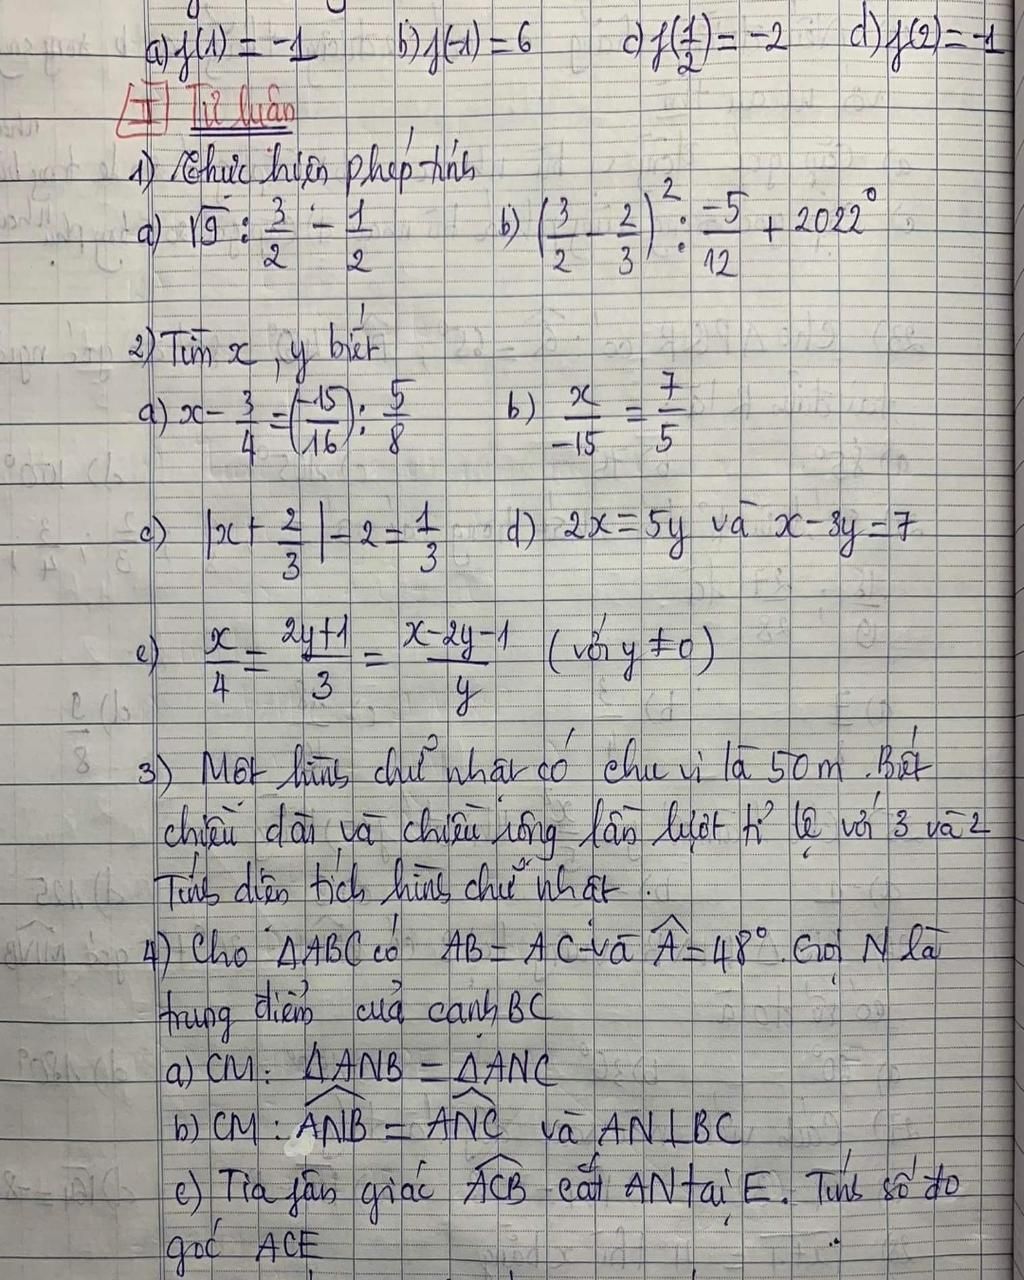 a) f(1) = -1   b) f(-1) = 6   c) f(1/2) = -2   d) f(2) = -1
II Tự luận
1) Thực hiện phép tính
a) √9 : 3/2 - 1/2   b) (3/2 - 2/3)² : -5/12 + 2022⁰
2) Tìm x, y biết
a) x - 3/4 = (-15/16) : 5/8   b) x/-15 = 7/5
c) |x + 2/3| - 2 = 1/3   d) 2x = 5y và x - 3y = 7
e) x/4 = 2y+1/3 = x-2y-1/y (với y ≠ 0)
3) Một hình chữ nhật có chu vi là 50m. Biết
chiều dài và chiều rộng lần lượt tỉ lệ với 3 và 2
Tính diện tích hình chữ nhật.
4) Cho ΔABC có AB = AC và Â = 48°. Gọi N là
trung điểm của cạnh BC
a) CM: ΔANB = ΔANC
b) CM: ∠ANB = ∠ANC và AN ⊥ BC
c) Tia phân giác ∠ACB cắt AN tại E. Tính số đo
góc ACE